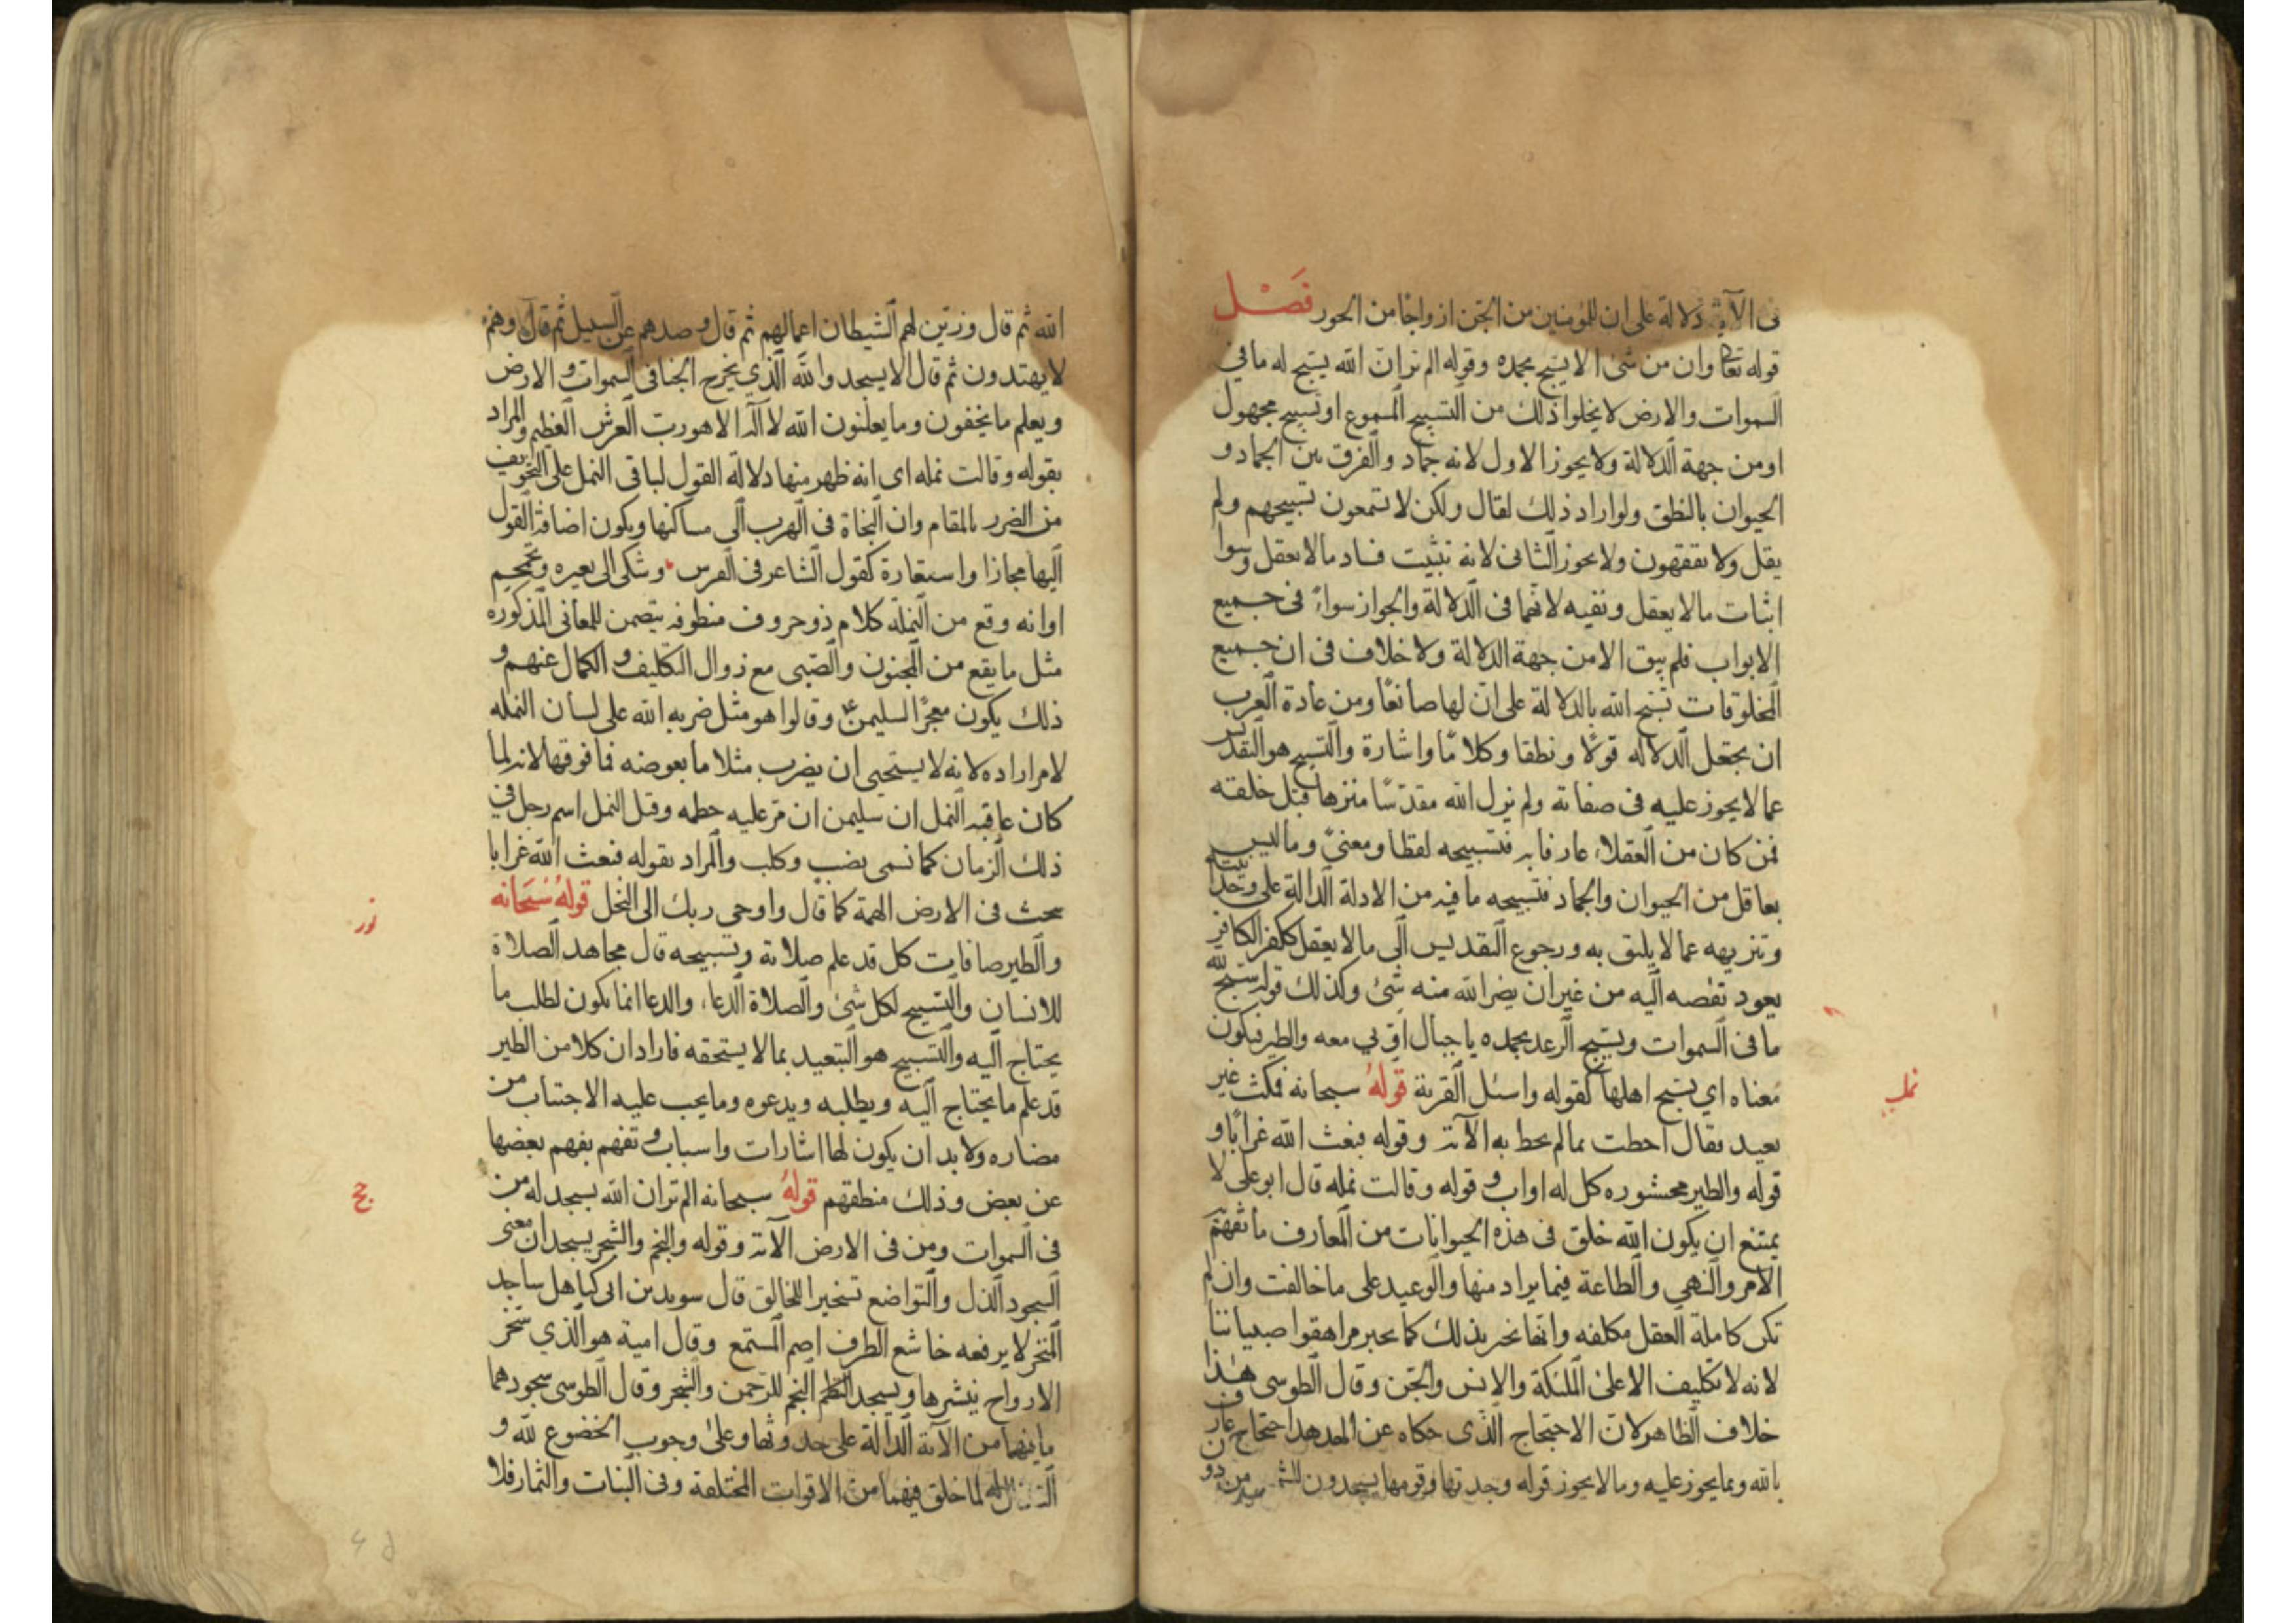 فى الآية دلالة على ان للمؤمنين من الجن ازواجا من الحور فَصْل
قوله تعا وان من شئ الا يسبح بحمده وقوله الم تر ان الله يسبح له ما في
السموات والارض لا يخلوا ذلك من التسبيح المسموع او تسبيح مجهول
او من جهة الدلالة ولا يجوز الاول لانه جماد والفرق بين الجماد و
الحيوان بالنطق ولو اراد ذلك لقال ولكن لا تسمعون تسبيحهم ولم
يقل ولا تفقهون ولا يجوز الثانى لانه تثبيت فساد ما لا يعقل وسوا
اثبات ما لا يعقل ونفيه لانهما فى الدلالة والجواز سواء فى جميع
الابواب فلم يبق الا من جهة الدلالة ولا خلاف فى ان جميع
المخلوقات تسبح الله بالدلالة على ان لها صانعًا ومن عادة العرب
ان يجعل الدلاله قولًا ونطقا وكلامًا واشارة والتسبيح هو التقديس
عما لا يجوز عليه فى صفاته ولم يزل الله مقدسًا منزها قبل خلقه
فمن كان من العقلاء عارفا به فتسبيحه لفظا ومعنىً وما ليس
بعاقل من الحيوان والجماد فتسبيحه ما فيه من الادلة الدالة على وحدانيته
وتنزيهه عما لا يليق به ورجوع التقديس الى ما لا يعقل ككفر الكافر
يعود نقصه اليه من غير ان يضر الله منه شئ وكذلك قوله سبح لله
ما فى السموات ويسبح الرعد بحمده يا جبال اوبي معه والطير فيكون
معناه اي يسبح اهلها كقوله واسئل القرية قولهُ سبحانه فمكث غير
بعيد فقال احطت بما لم تحط به الآية وقوله فبعث الله غرابًا و
قوله والطير محشوره كل له اواب وقوله وقالت نمله قال ابو على لا
يمتنع ان يكون الله خلق فى هذه الحيوانات من المعارف ما تفهم
الامر والنهي والطاعة فيما يراد منها والوعيد على ما خالفت وان لم
تكن كاملة العقل مكلفه وانها تخبر بذلك كما يخبر مراهقوا صبياننا
لانه لا تكليف الا على الملئكة والانس والجن وقال الطوسى هذا
خلاف الظاهر لان الاحتجاج الذى حكاه عن الهدهد احتجاج عارف
بالله وبما يجوز عليه وما لا يجوز قوله وجدتها وقومها يسجدون للشمس من دون
الله ثم قال وزين لهم الشيطان اعمالهم ثم قال وصدهم عن السبيل ثم قال وهم
لا يهتدون ثم قال الا يسجدوا لله الذي يخرج الخبا فى السموات والارض
ويعلم ما يخفون وما يعلنون الله لا اله الا هو رب العرش العظيم والمراد
بقوله وقالت نمله اى انه ظهر منها دلالة القول لباقى النمل على التخويف
من الضرر بالمقام وان النجاة فى الهرب الى مساكنها ويكون اضافة القول
اليها مجازا واستعارة كقول الشاعر فى الفرس وشكى الى بعيره وتحمحم
او انه وقع من النملة كلام ذو حروف منظومه يتضمن للمعانى المذكوره
مثل ما يقع من المجنون والصبى مع زوال التكليف والكمال عنهم و
ذلك يكون معجزًا لسليمن ع وقالوا هو مثل ضربه الله على لسان النمله
لامر اراده لانه لا يستحيى ان يضرب مثلا ما بعوضه فما فوقها لانه لما
كان عاقبه النمل ان سليمن ان مر عليه حطمه وقيل النمل اسم رجل في
ذلك الزمان كما نسمى بضب وكلب والمراد بقوله فبعث الله غرابا
يبحث فى الارض الهمه كما قال واوحى ربك الى النحل قولهُ سُبحَانه
والطير صافات كل قد علم صلاته وتسبيحه قال مجاهد الصلاة
للانسان والتسبيح لكل شئ والصلاة الدعاء والدعا انما يكون لطلب ما
يحتاج اليه والتسبيح هو التبعيد بما لا يستحقه فاراد ان كلا من الطير
قد علم ما يحتاج اليه ويطلبه ويدعوه وما يجب عليه الاجتناب من
مضاره ولا بد ان يكون لها اشارات واسباب وتفهم بفهم بعضها
عن بعض وذلك منطقهم قولهُ سبحانه الم تر ان الله يسجد له من
فى السموات ومن فى الارض الآية وقوله والنجم والشجر يسجدان معنى
السجود الذل والتواضع تسخيرا للخالق قال سويد بن ابى كاهل ساجد
المنخر لا يرفعه خاشع الطرف اصم المستمع وقال امية هو الذي سخر
الارواح ينشرها ويسجد النجم للرحمن والشجر وقال الطوسى سجودهما
ما فيهما من الآية الدالة على حدوثها وعلى وجوب الخضوع لله و
لما خلق فيهما من الاقوات المختلفة وفى النبات والثمار فلا
نمل
نور
حج